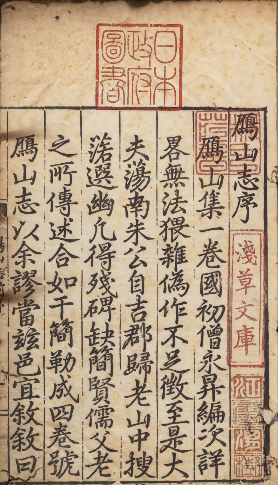 日本
政府
圖書
鴈山志序
淺草文庫
鴈山集一卷國初僧永昇編次詳
畧無法猥雜偽作不足徵至是大
夫蕩南朱公自吉郡歸老山中搜
箬選幽凡得殘碑缺簡賢儒父老
之所傳述合如干簡勒成四卷號
鴈山志以余謬當兹邑宜敘敘曰